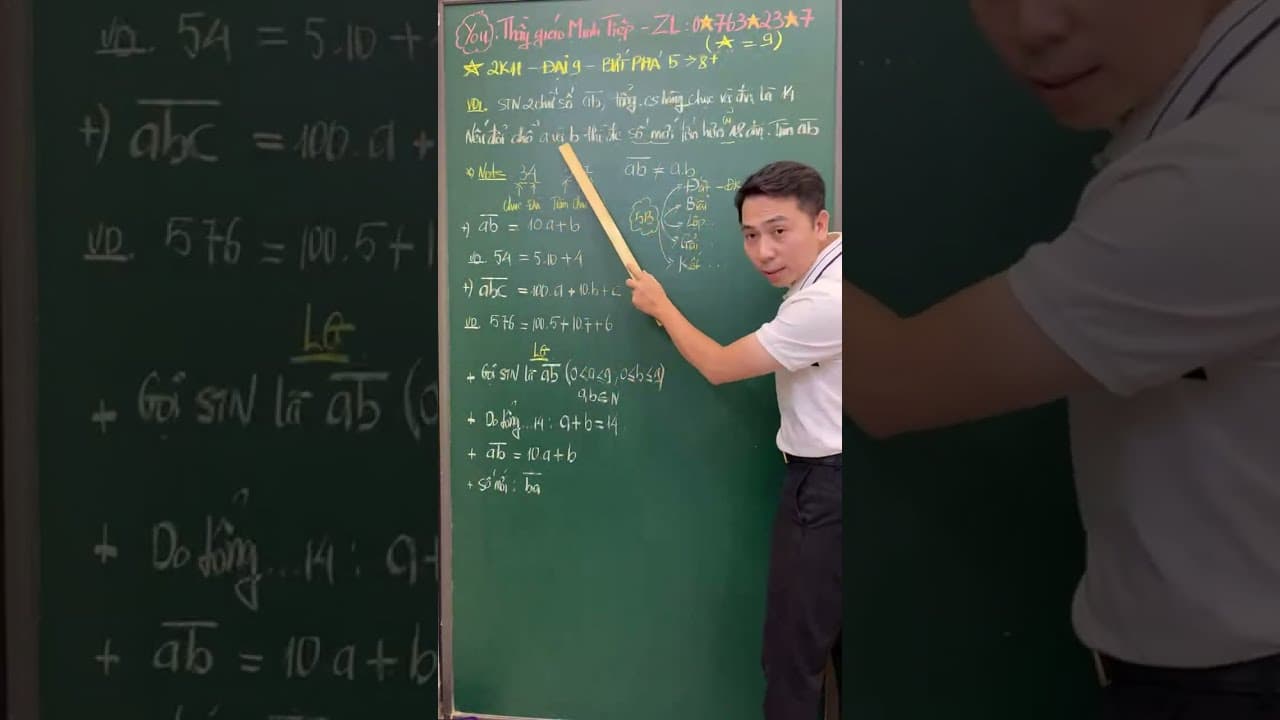 You. Thầy giáo Minh Tiệp - ZL : 0★763★23★7
(★ = 9)
★ 2K11 - ĐẠI 9 - BỨT PHÁ 5 → 8+
VD1. STN 2 chữ số ab, tổng cs hàng chục và đvị là 14
Nếu đổi chỗ a và b thì đc số mới lớn hơn 18 đvị. Tìm ab
*) Note: 34
Chục Đvị Trăm
ab ≠ a.b
5B
Đặt - ĐK
Biểu
Lập...
Giải...
Kết ...
+) ab = 10.a+b
VD. 54 = 5.10+4
+) abc = 100.a+10.b+c
VD. 576 = 100.5+10.7+6
LG
+ Gọi STN là ab (0<a≤9, 0≤b≤9)
a,b∈N
+ Do tổng...14 : a+b=14
+ ab = 10a+b
+ Số mới : ba
VD. 54 = 5.10+
+) abc = 100.a+
VD 576 = 100.5+1
LG
+ Gọi STN là ab (0
+ Do tổng...14 : a+
+ ab = 10a+b